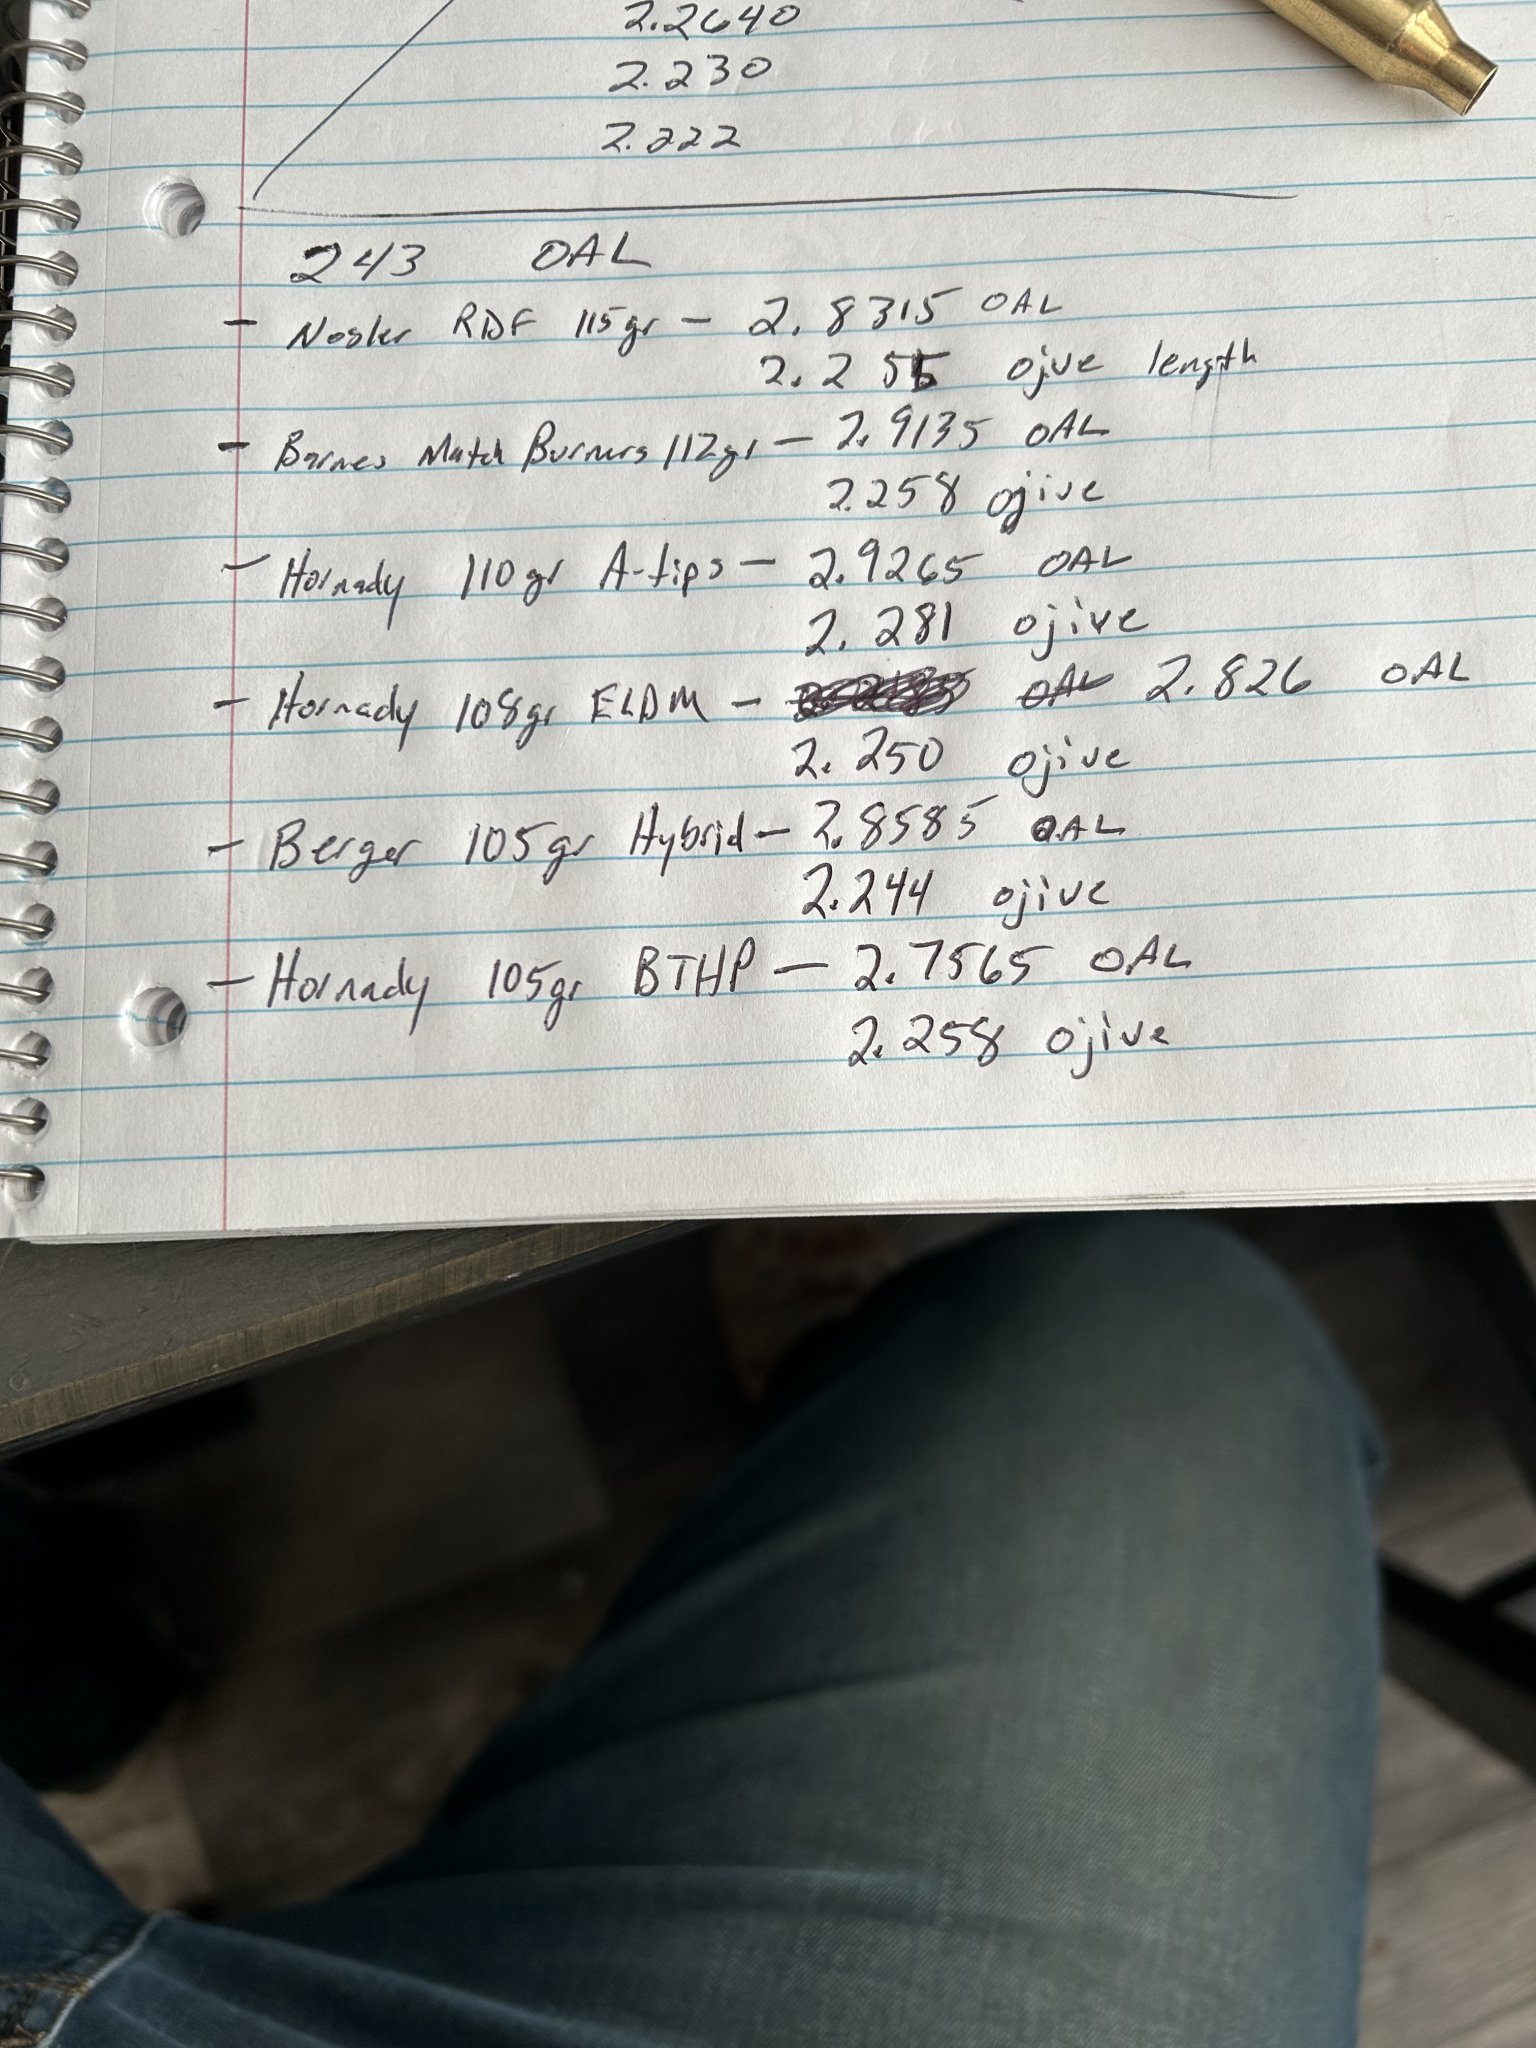 2.2640
2.230
2.222
243 OAL
- Nosler RDF 115gr - 2.8315 OAL
2.255 ojve length
- Barnes Match Burners 112gr - 2.9135 OAL
2.258 ojive
- Hornady 110gr A-tips - 2.9265 OAL
2.281 ojive
- Hornady 108gr ELDM - OAL 2.826 OAL
2.250 ojive
- Berger 105gr Hybrid - 2.8585 OAL
2.244 ojive
- Hornady 105gr BTHP - 2.7565 OAL
2.258 ojive